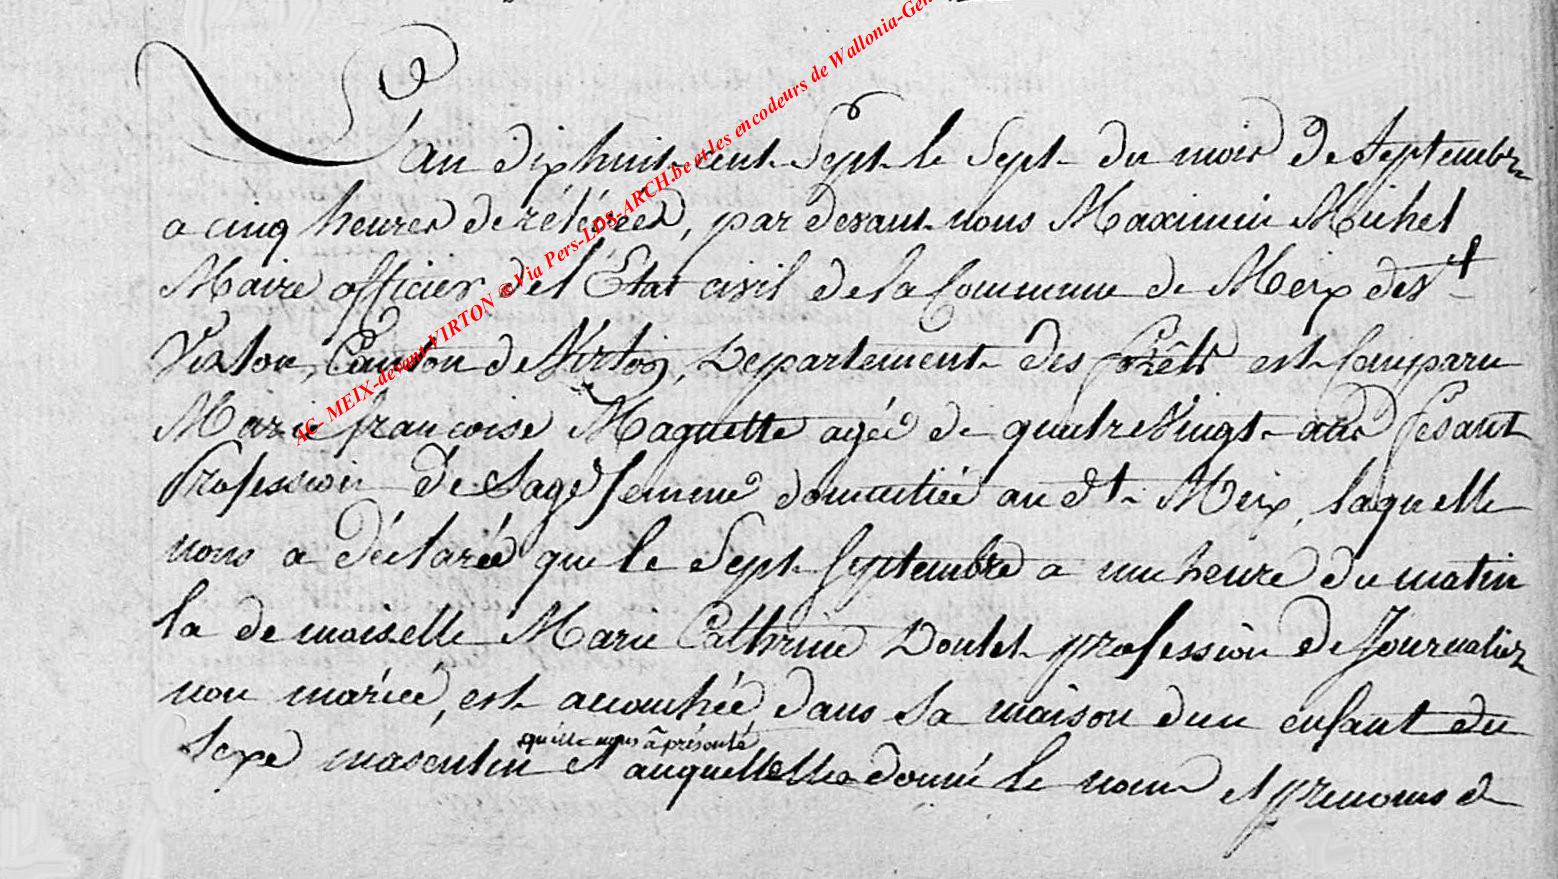 AC- MEIX-devant-VIRTON @Via Pers-LDS-ARCH.be et les encodeurs de Wallonia-Gen
L'an dixhuit cent Sept le Sept du mois de Septembre
a cinq heures de rélévées, par devant nous Maximin Michel
Maire officier de l'Etat civil de la Commune de Meix devt
Virton, Canton de Virton, Departement des forêts est Comparu
Marie françoise Maguette agée de quatre Vingt ans fesant
Profession de Sage femme domiciliée au dt Meix, laquelle
nous a déclarée que le Sept Septembre a une heure du matin
la demoiselle Marie Cathrine Doulet profession de Journalier
non mariée, est accouchée dans sa maison d'un enfant du
quille nous â présenté
Sexe masculin et auquelle elle a donné le nom et prenoms de